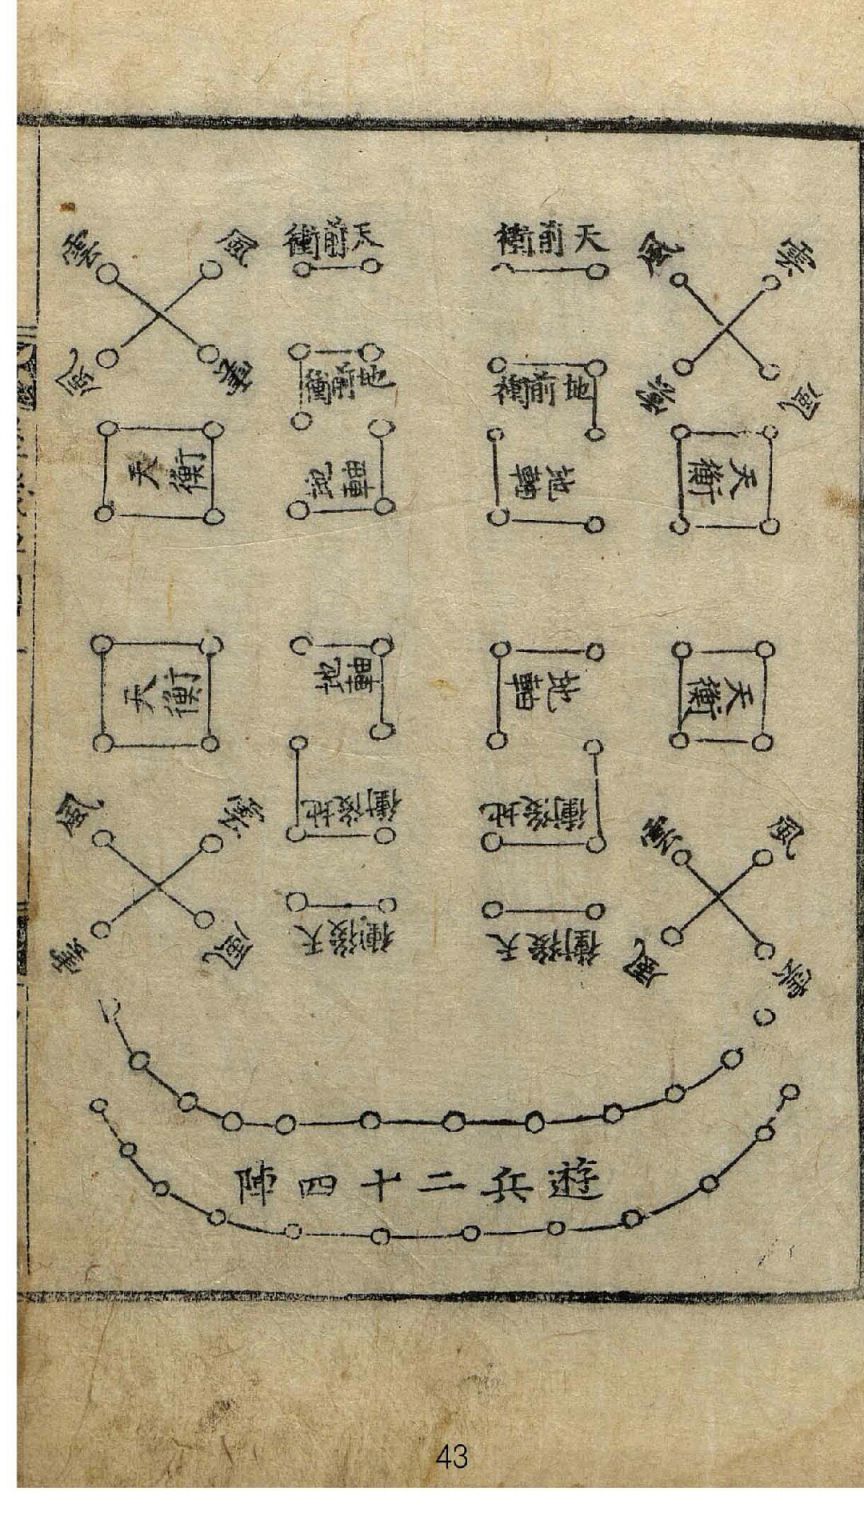 天前衝
天前衝
雲
風
風
雲
風
雲
風
雲
地前衝
地前衝
天衡
地軸
地軸
天衡
天衡
地軸
地軸
天衡
地後衝
地後衝
風
雲
雲
風
天後衝
天後衝
雲
風
風
雲
遊兵二十四陣
43